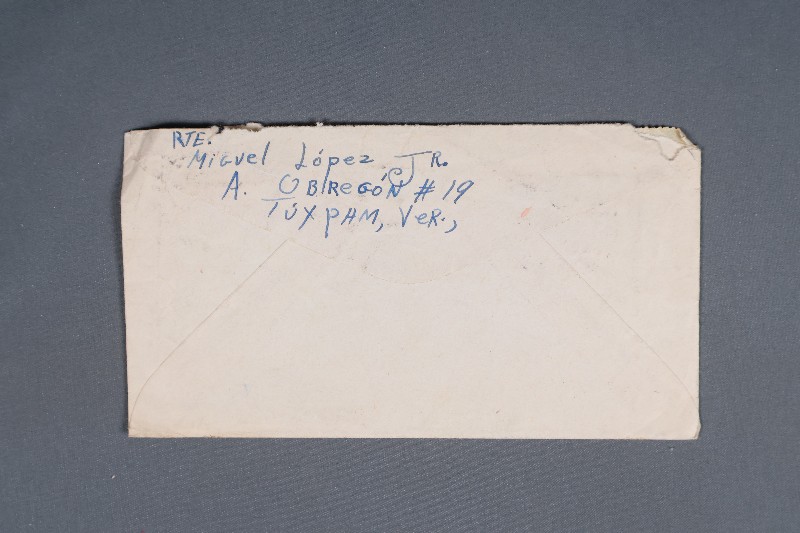 RTE.
Miguel López JR.
A. OBREGÓN # 19
TÚXPAM, VeR.,